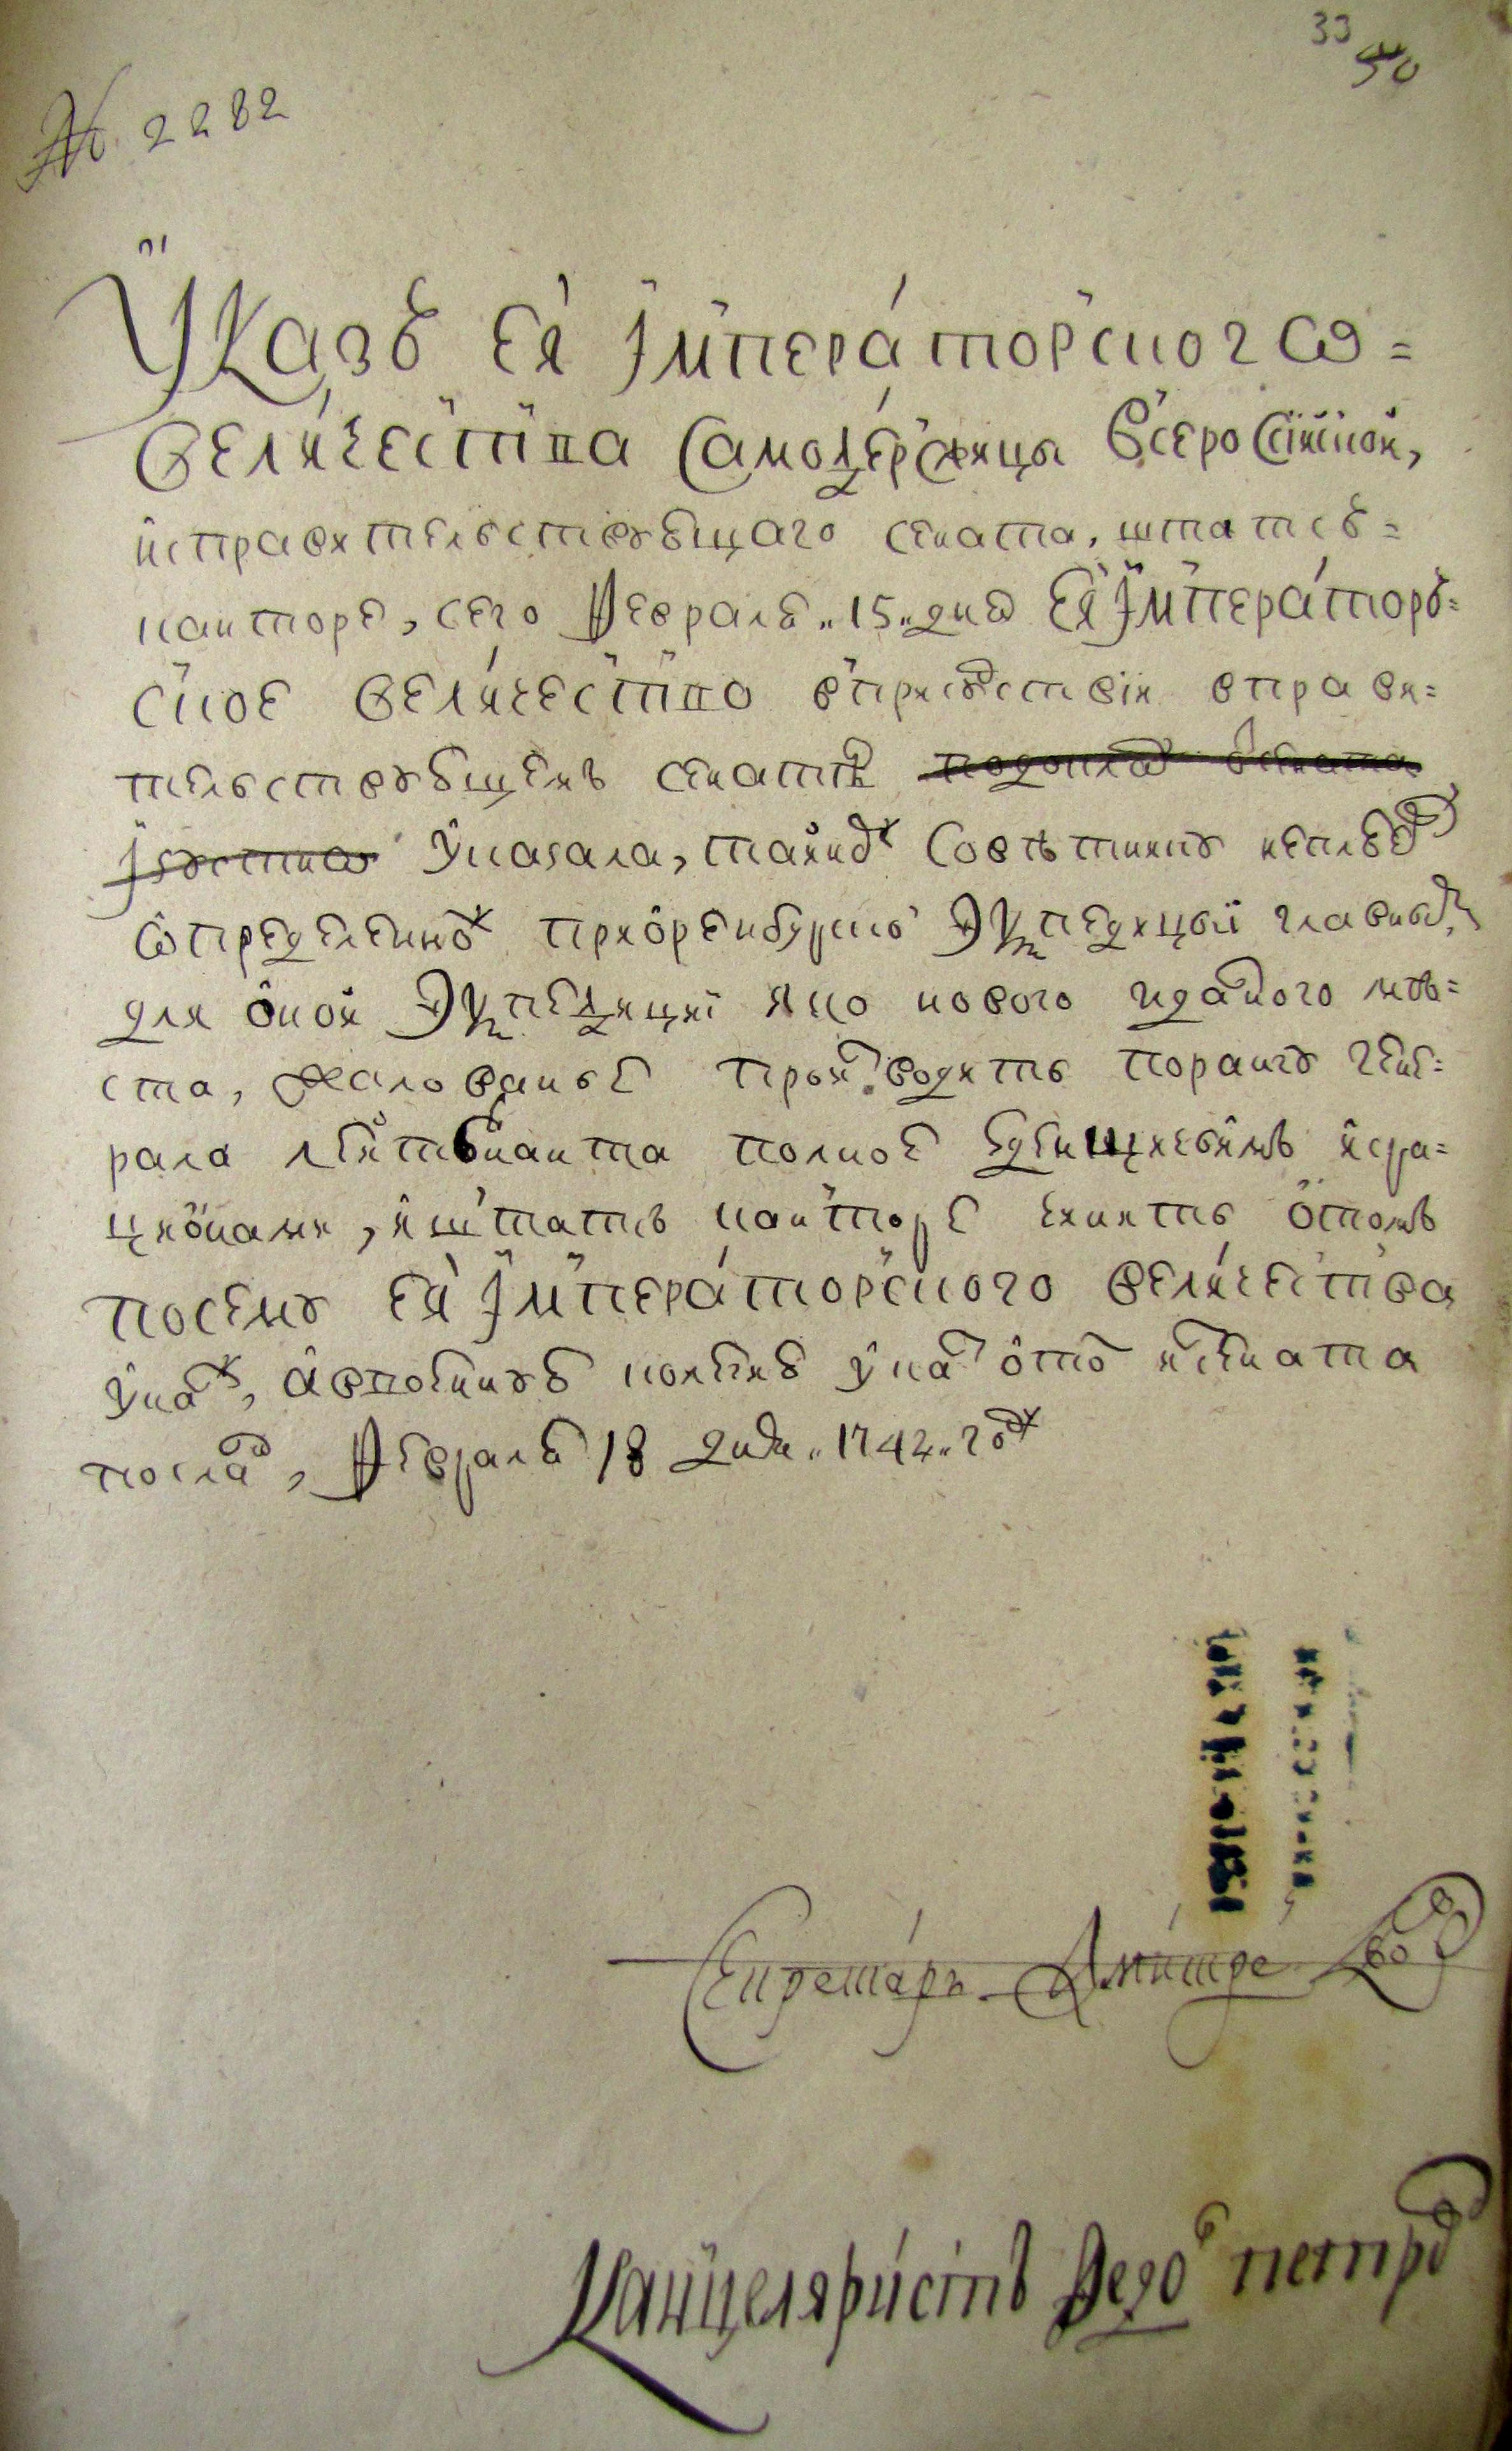 33
40
№ 2282
Указъ Ея Императорскогѡ=
Величества Самодержицы Всеросиской,
исправительствующаго сената, штатсъ=
канторе, сего Февраля „15„ дня Ея Императоръ=
ское Величество вприсудствіи вправи=
тельствующемъ сенатѣ
указала, таиному Советнику неплюеву
ѡпределенному приоренбурской Экъпедицыи главным,
для оной Экъпедицыи яко нового идалного мѣ=
ста, жалованье производить порангу гене=
рала леитенанта полное здензщичьимъ ира=
цыонами, иштатсъ канторе чинить отомъ
посему Ея Императорского величества
указу, авпоенную колегию указ отом исената
послан, Февраля 18 дня „1742„ году
Секретаръ Дмитре
Канцеляристъ Федор петров